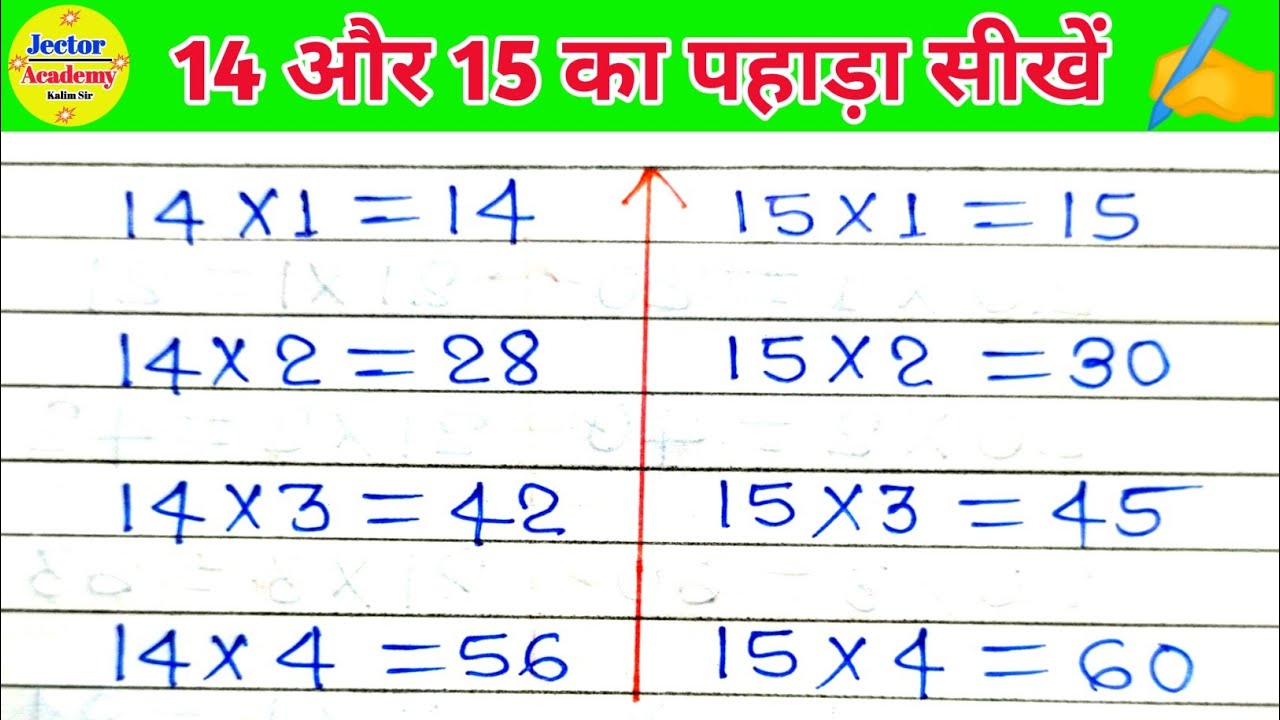 Jector
Academy
Kalim Sir
14 और 15 का पहाड़ा सीखें
14 X 1 = 14
15 X 1 = 15
14 X 2 = 28
15 X 2 = 30
14 X 3 = 42
15 X 3 = 45
14 X 4 = 56
15 X 4 = 60